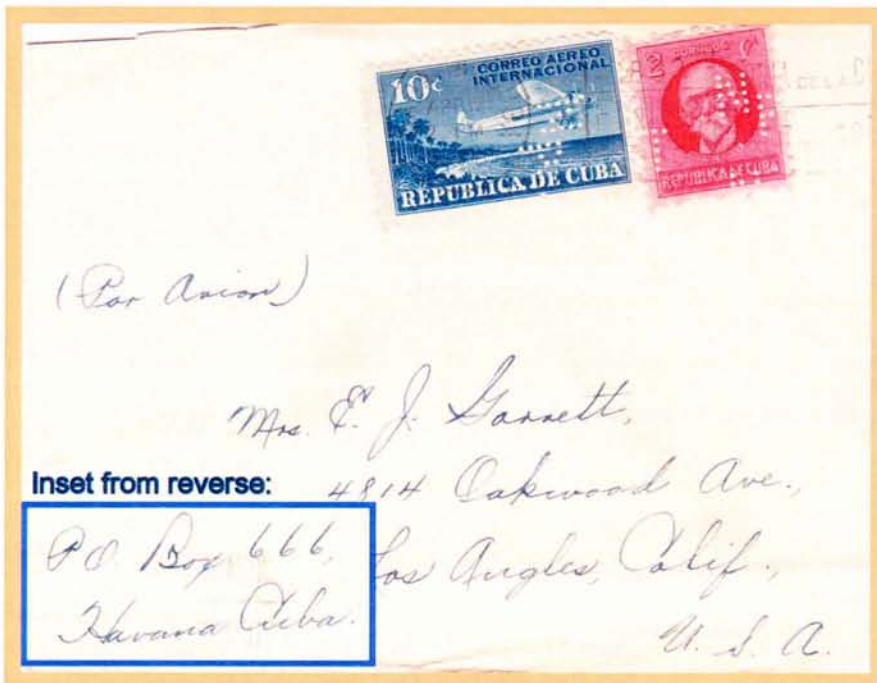 10¢
CORREO AEREO
INTERNACIONAL
REPUBLICA DE CUBA
2 CORREOS ¢
REPUBLICA DE CUBA
DE LA
(Par Avion)
Mrs. E. J. Garrett,
4814 Oakwood Ave.,
Los Angles, Calif.,
U. S. A.
Inset from reverse:
P.O. Box 666,
Havana Cuba.